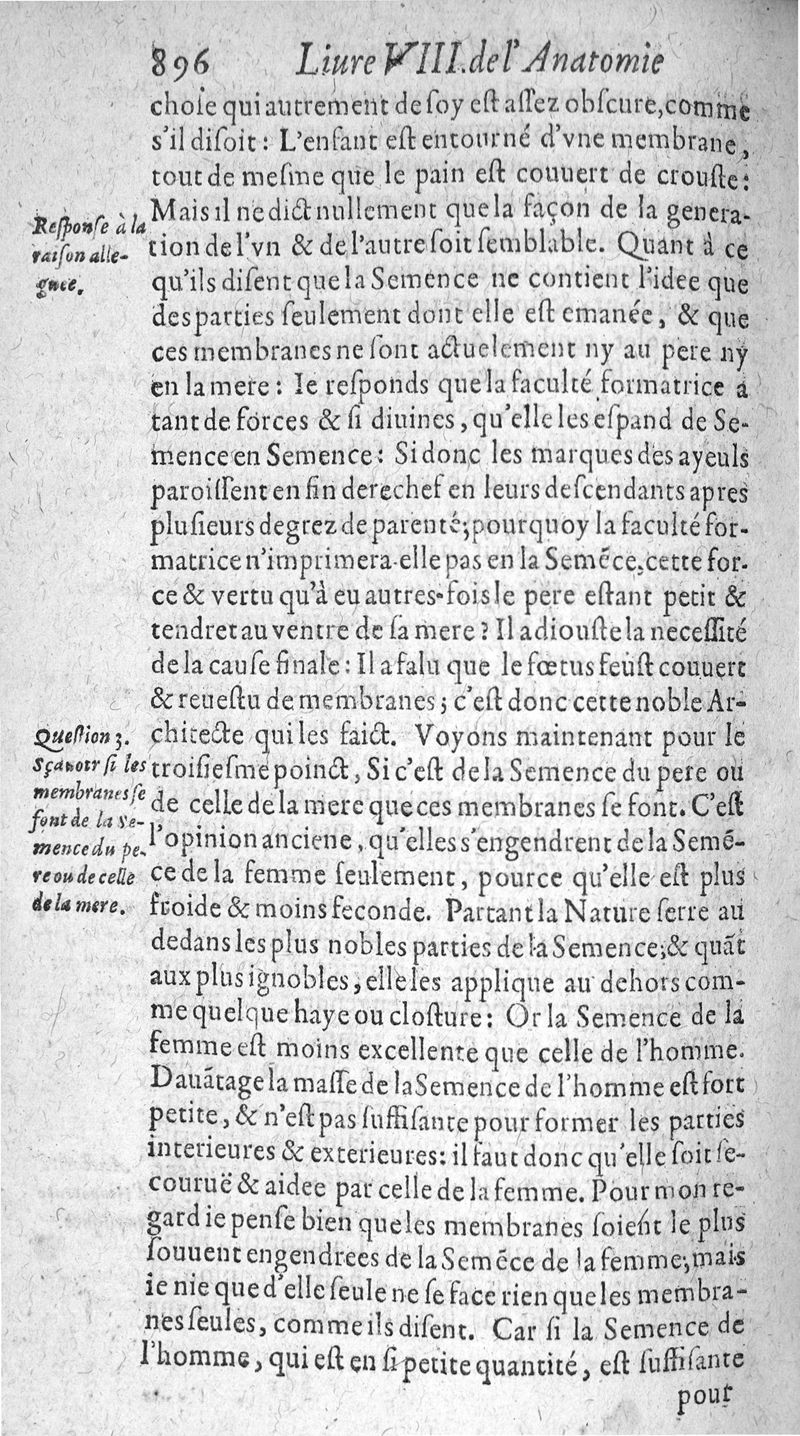 896 Liure VIII. de l'Anatomie
choſe qui autrement de ſoy eſt aſſez obſcure, comme
s'il diſoit: L'enfant eſt entourné d'vne membrane,
tout de meſme que le pain eſt couuert de crouſte:
Reſponſe à la
raiſon alle-
guee.
Mais il ne dict nullement que la façon de la genera-
tion de l'vn & de l'autre ſoit ſemblable. Quant à ce
qu'ils diſent que la Semence ne contient l'idee que
des parties ſeulement dont elle eſt emanée, & que
ces membranes ne ſont actuelement ny au pere ny
en la mere: Ie reſponds que la faculté formatrice à
tant de forces & ſi diuines, qu'elle les eſpand de Se-
mence en Semence: Si donc les marques des ayeuls
paroiſſent en fin derechef en leurs deſcendants apres
pluſieurs degrez de parenté; pourquoy la faculté for-
matrice n'imprimera-elle pas en la Semẽce, cette for-
ce & vertu qu'à eu autres-fois le pere eſtant petit &
tendret au ventre de ſa mere? Il adiouſte la neceſſité
de la cauſe finale: Il a falu que le fœtus feuſt couuert
& reueſtu de membranes; c'eſt donc cette noble Ar-
Queſtion 3.
Sçauoir ſi les
membranes ſe
font de la Se-
mence du pe-
re ou de celle
de la mere.
chitecte qui les faict. Voyons maintenant pour le
troiſieſme poinct, Si c'eſt de la Semence du pere ou
de celle de la mere que ces membranes ſe font. C'eſt
l'opinion anciene, qu'elles s'engendrent de la Semẽ-
ce de la femme ſeulement, pource qu'elle eſt plus
froide & moins feconde. Partant la Nature ſerre au
dedans les plus nobles parties de la Semence; & quãt
aux plus ignobles, elle les applique au dehors com-
me quelque haye ou cloſture: Or la Semence de la
femme eſt moins excellente que celle de l'homme.
Dauãtage la maſſe de la Semence de l'homme eſt fort
petite, & n'eſt pas ſuffiſante pour former les parties
interieures & exterieures: il faut donc qu'elle ſoit ſe-
couruë & aidee par celle de la femme. Pour mon re-
gard ie penſe bien que les membranes ſoient le plus
ſouuent engendrees de la Semẽce de la femme; mais
ie nie que d'elle ſeule ne ſe face rien que les membra-
nes ſeules, comme ils diſent. Car ſi la Semence de
l'homme, qui eſt en ſi petite quantité, eſt ſuffiſante
pour